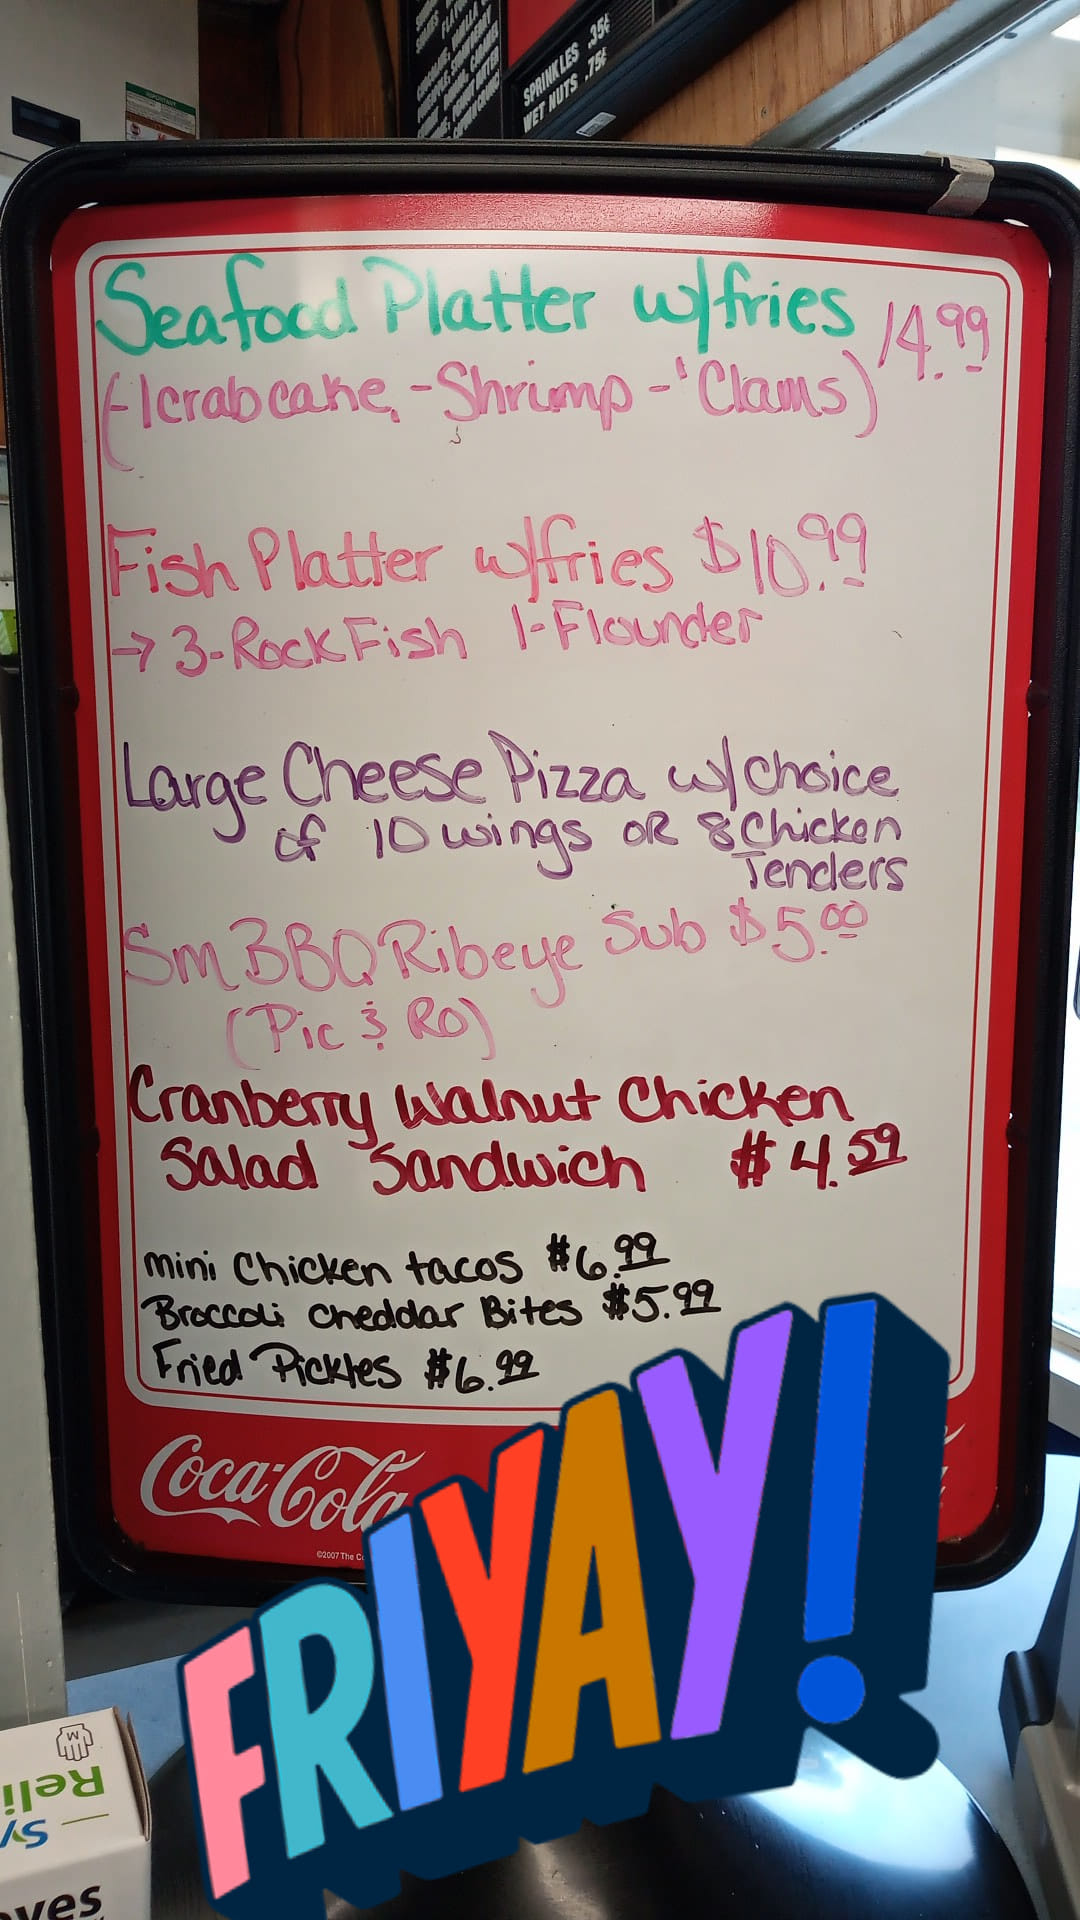 SPRINKLES .35¢
WET NUTS .75¢
Seafood Platter w/fries 14.99
(-1crabcake, -Shrimp - 'Clams)
Fish Platter w/fries $10.99
→ 3-RockFish 1-Flounder
Large Cheese Pizza w/choice
of 10 wings OR 8 Chicken
Tenders
Sm BBQ Ribeye Sub $5.00
(Pic & RO)
Cranberry Walnut Chicken
Salad Sandwich $4.59
mini Chicken tacos $6.99
Broccoli cheddar Bites $5.99
Fried Pickles $6.99
Coca-Cola
©2007 The C
FRIYAY!
M
Reli
Sy
oves